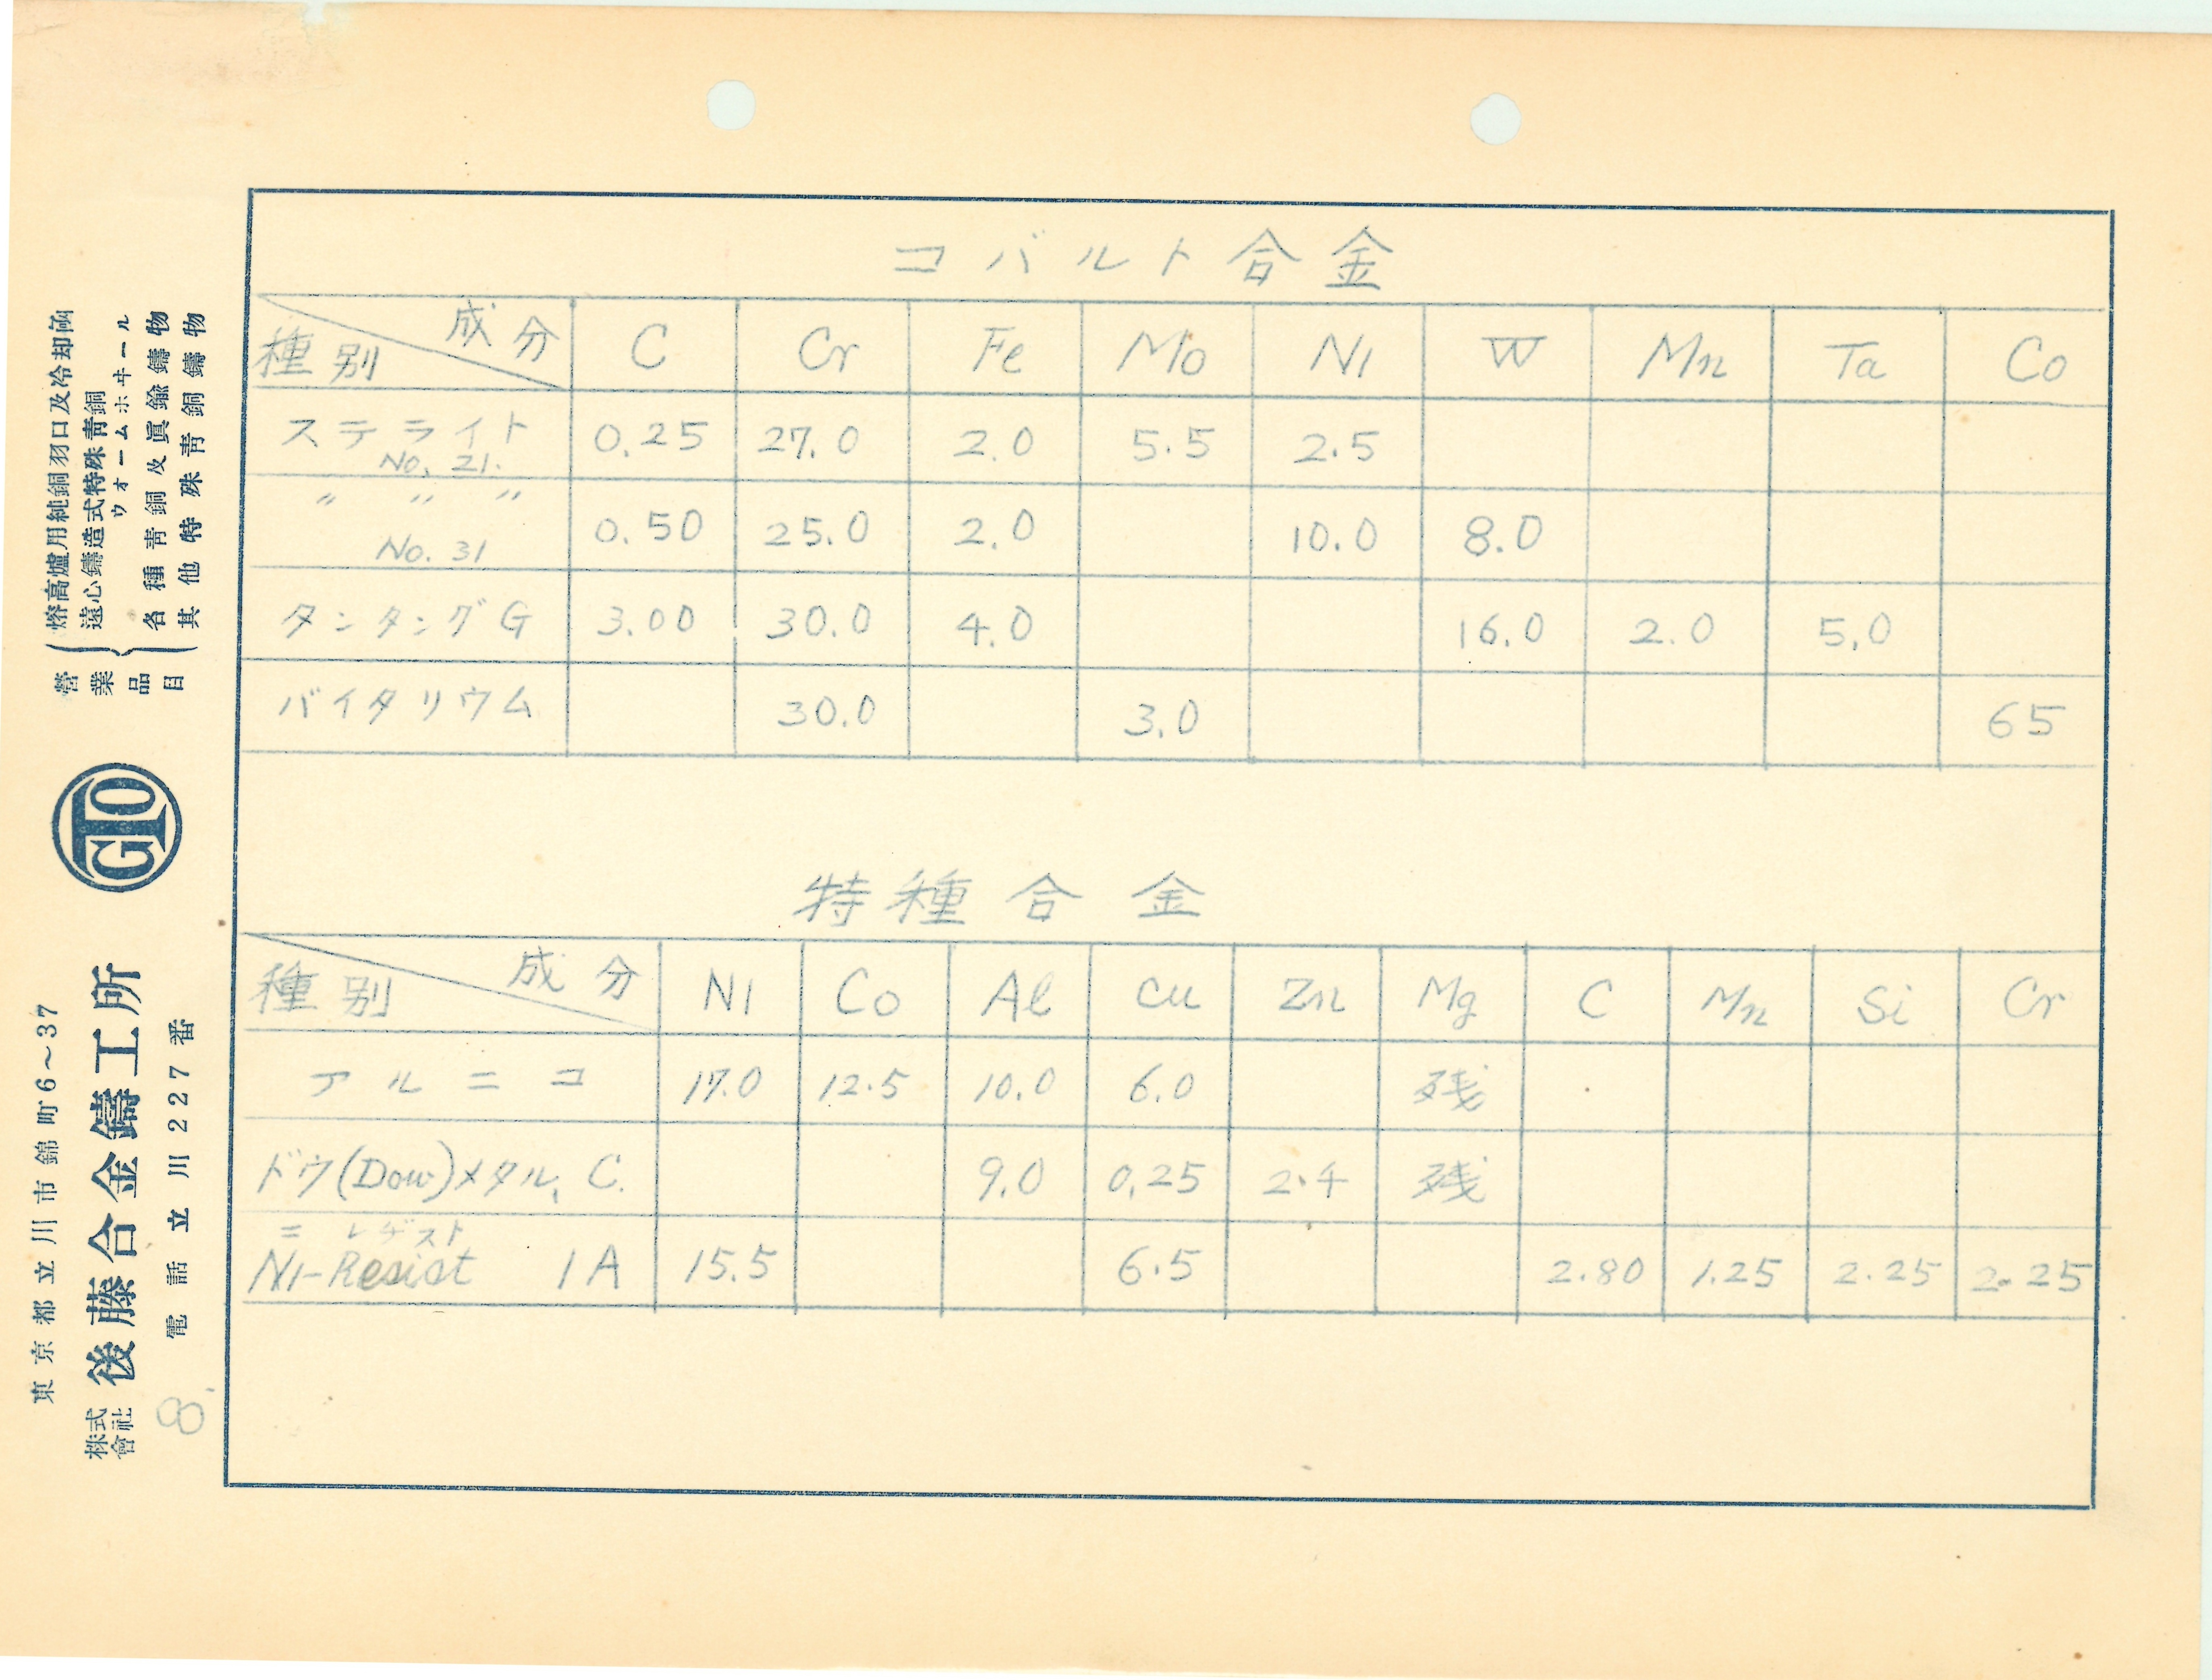 コバルト合金
種別 成分 C Cr Fe Mo Ni W Mn Ta Co
ステライト No. 21. 0.25 27.0 2.0 5.5 2.5
〃 〃 〃 No. 31 0.50 25.0 2.0 10.0 8.0
タンタングG 3.00 30.0 4.0 16.0 2.0 5.0
バイタリウム 30.0 3.0 65
特種合金
種別 成分 Ni Co Al Cu Zn Mg C Mn Si Cr
アルニコ 17.0 12.5 10.0 6.0 残
ドウ(Dow)メタル、C. 9.0 0.25 2.4 残
ニ レヂスト
Ni-Resist 1A 15.5 6.5 2.80 1.25 2.25 2.25
營業品目
熔高爐用純銅羽口及冷却函
遠心鑄造式特殊靑銅
ウオームホヰール
各種靑銅及眞鍮鑄物
其他特殊靑銅鑄物
GTO
東京都立川市錦町6～37
株式會社 後藤合金鑄工所
電話立川227番
8.